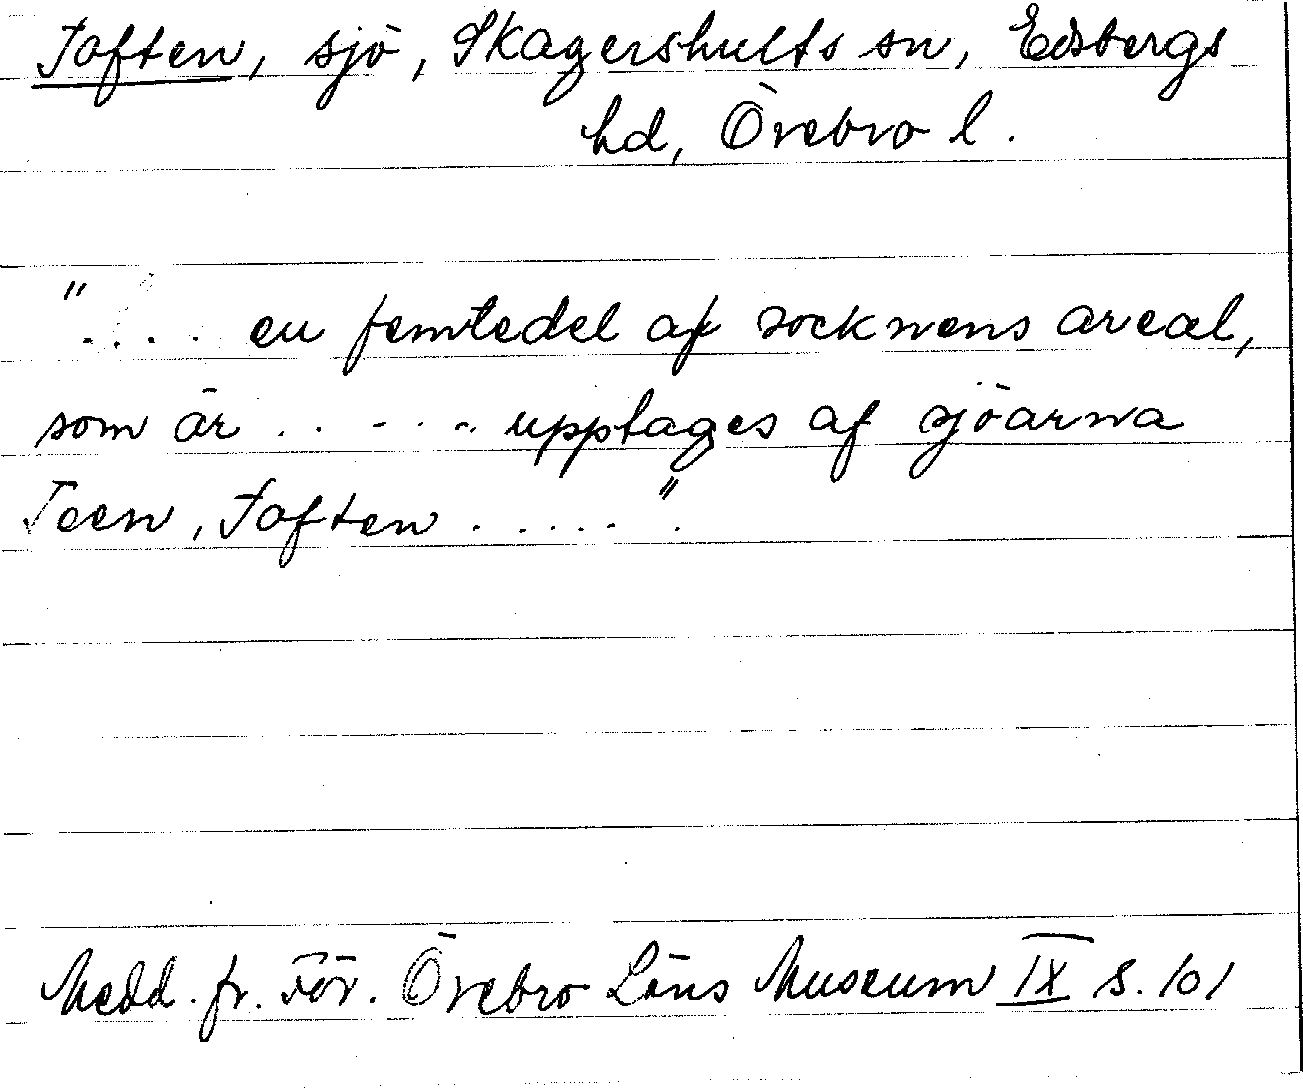 Toften, sjö, Skagershults sn, Edsbergs
hd, Örebro l.
".... en femtedel af socknens areal,
som är ..... upptages af sjöarna
Teen, Toften ....."
Medd. fr. För. Örebro Läns Museum IX s. 101